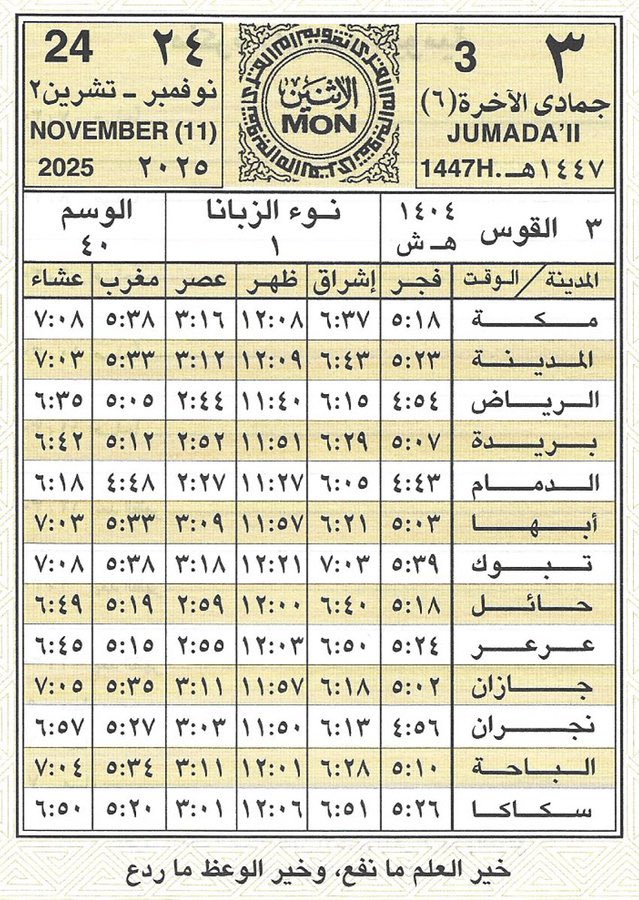 24 ٢٤
نوفمبر - تشرين٢
NOVEMBER (11)
2025 ٢٠٢٥
الاثنين
MON
3 ٣
جمادى الآخرة (٦)
JUMADA'II
1447H. ١٤٤٧هـ
٣ القوس ١٤٠٤ هـ ش
نوء الزبانا
١
الوسم
٤٠
المدينة / الوقت فجر إشراق ظهر عصر مغرب عشاء
مكة ٥:١٨ ٦:٣٧ ١٢:٠٨ ٣:١٦ ٥:٣٨ ٧:٠٨
المدينة ٥:٢٣ ٦:٤٣ ١٢:٠٩ ٣:١٢ ٥:٣٣ ٧:٠٣
الرياض ٤:٥٤ ٦:١٥ ١١:٤٠ ٢:٤٤ ٥:٠٥ ٦:٣٥
بريدة ٥:٠٧ ٦:٢٩ ١١:٥١ ٢:٥٢ ٥:١٢ ٦:٤٢
الدمام ٤:٤٣ ٦:٠٥ ١١:٢٧ ٢:٢٧ ٤:٤٨ ٦:١٨
أبها ٥:٠٣ ٦:٢١ ١١:٥٧ ٣:٠٩ ٥:٣٣ ٧:٠٣
تبوك ٥:٣٩ ٧:٠٣ ١٢:٢١ ٣:١٨ ٥:٣٨ ٧:٠٨
حائل ٥:١٨ ٦:٤٠ ١٢:٠٠ ٢:٥٩ ٥:١٩ ٦:٤٩
عرعر ٥:٢٤ ٦:٥٠ ١٢:٠٣ ٢:٥٥ ٥:١٥ ٦:٤٥
جازان ٥:٠٢ ٦:١٨ ١١:٥٧ ٣:١١ ٥:٣٥ ٧:٠٥
نجران ٤:٥٦ ٦:١٣ ١١:٥٠ ٣:٠٣ ٥:٢٧ ٦:٥٧
الباحة ٥:١٠ ٦:٢٨ ١٢:٠١ ٣:١١ ٥:٣٤ ٧:٠٤
سكاكا ٥:٢٦ ٦:٥١ ١٢:٠٦ ٣:٠١ ٥:٢٠ ٦:٥٠
خير العلم ما نفع، وخير الوعظ ما ردع